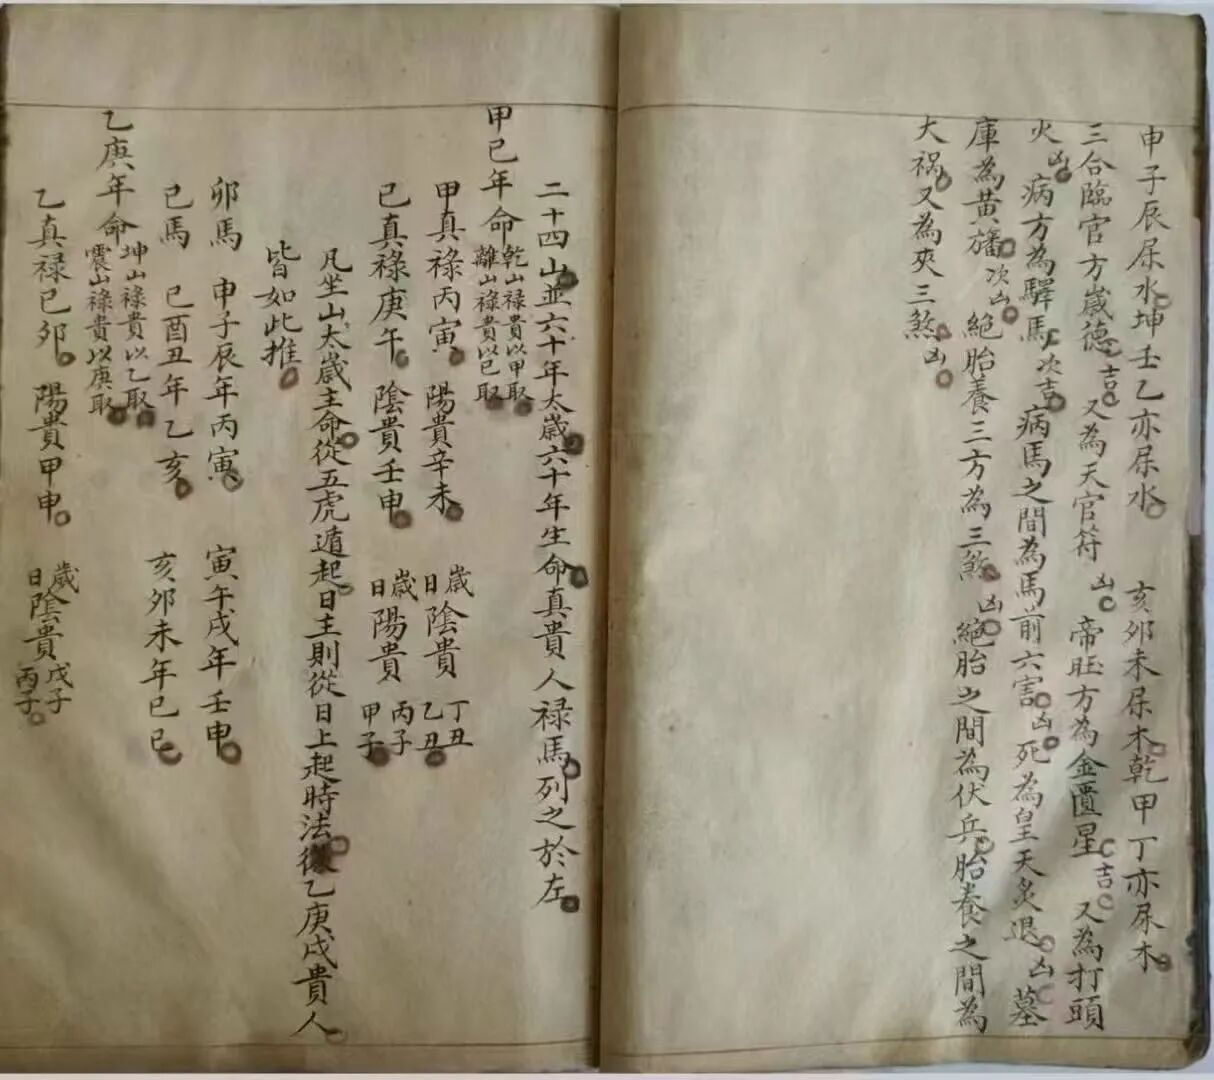 申子辰屬水坤壬乙亦屬水 亥卯未屬木乾甲丁亦屬木
三合臨官方為歲德吉 又為天官符凶 帝旺方為金匱星吉 又為打頭
火凶 病方為驛馬次吉 病馬之間為馬前六害凶 死為皇天炙退凶 墓
庫為黃旛次凶 絕胎養三方為三煞凶 絕胎之間為伏兵胎養之間為
大禍又為夾三煞凶
二十四山並六十年太歲六十年生命真貴人祿馬列之於左
甲己年命 乾山祿貴以甲取 離山祿貴以己取
甲真祿丙寅 陽貴辛未 歲日陰貴 丁丑 乙丑
己真祿庚午 陰貴壬申 歲日陽貴 丙子 甲子
凡坐山太歲主命從五虎遁起日主則從日上起時法 乙庚戌貴人
皆如此推
卯馬 申子辰年丙寅 寅午戌年壬申
己馬 巳酉丑年乙亥 亥卯未年己巳
乙庚年命 坤山祿貴以乙取 震山祿貴以庚取
乙真祿己卯 陽貴甲申 歲日陰貴 戊子 丙子